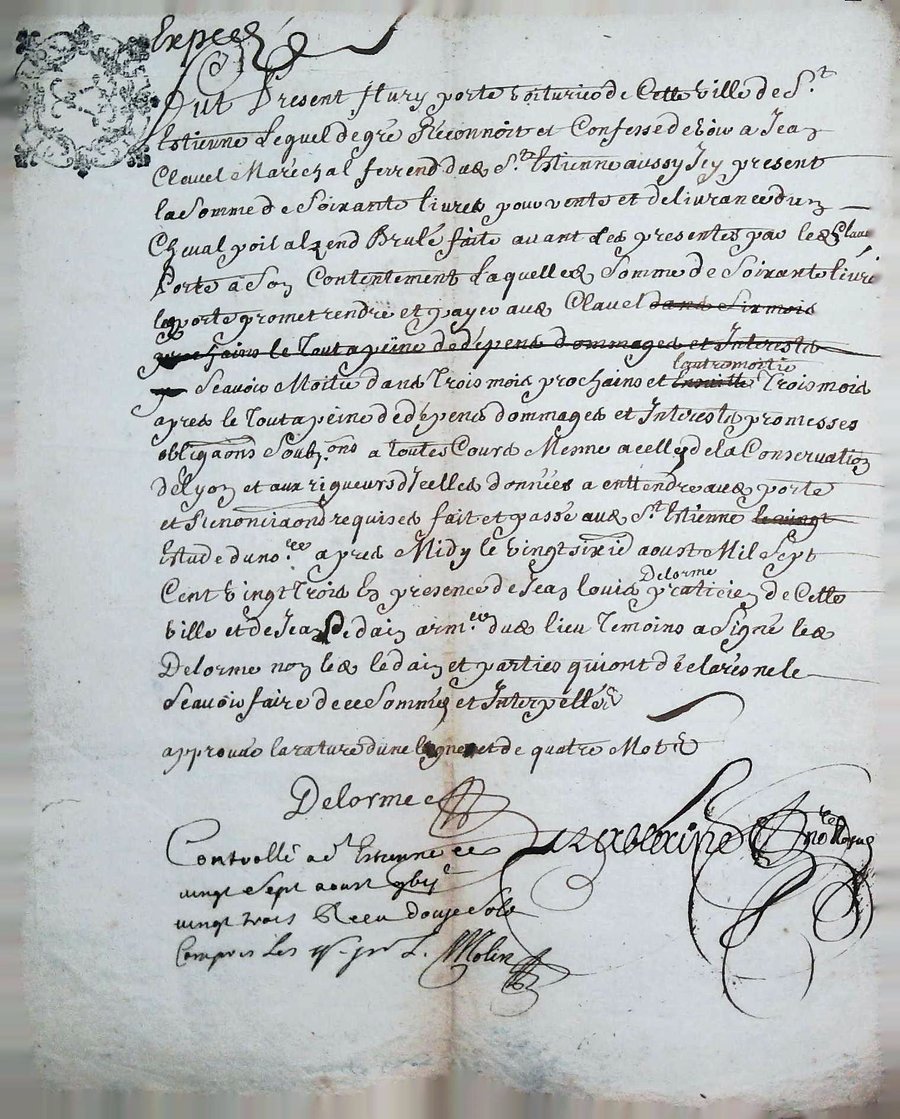 Expeé
Fut Present flury porte voiturier de Cette ville de St
Estienne Lequel de gré Reconnoit et Confesse devoir a Jean
Clavel Maréchal ferrend dud St Estienne aussy Icy present
la Somme de Soixante livres pour vente et delivrance dun
Cheval poil alzend Brulé faite avant Les presentes par led Clavel
Porte a Son Contentement Laquelled Somme de Soixante livres
led porte promet rendre et payer aud Clavel dans Six mois
prochains le Tout a peine de dépens dommages et Interests
Scavoir Moitié dans Trois mois prochains et lautre moitié Trois mois
apres le Tout a peine de dépens dommages et Interests promesses
obligaons Soubz.ons a toutes Cours Mesme a celle de la Conservation
de Lyon et aux rigueurs d'Icelles données a enttendre aud porte
et Renonciaons requises fait et passé aud St Estienne le vingt
Estude du no.re apres Midy le vingt sixie aoust Mil Sept
Cent vingt Trois En presence de Jean louis Delorme praticien de Cette
ville et de Jean Ledain arm.er dud lieu Temoins a Signé led
Delorme non led Ledain et parties qui ont déclarés ne le
Scavoir faire de ce Sommés et Interpellés
approuvé la rature dune ligne et de quatre Mots
Delorme
no.re
Controllé a St Estienne ce
vingt Sept aoust
vingt trois Receu douze Sols
Compris Les Molin